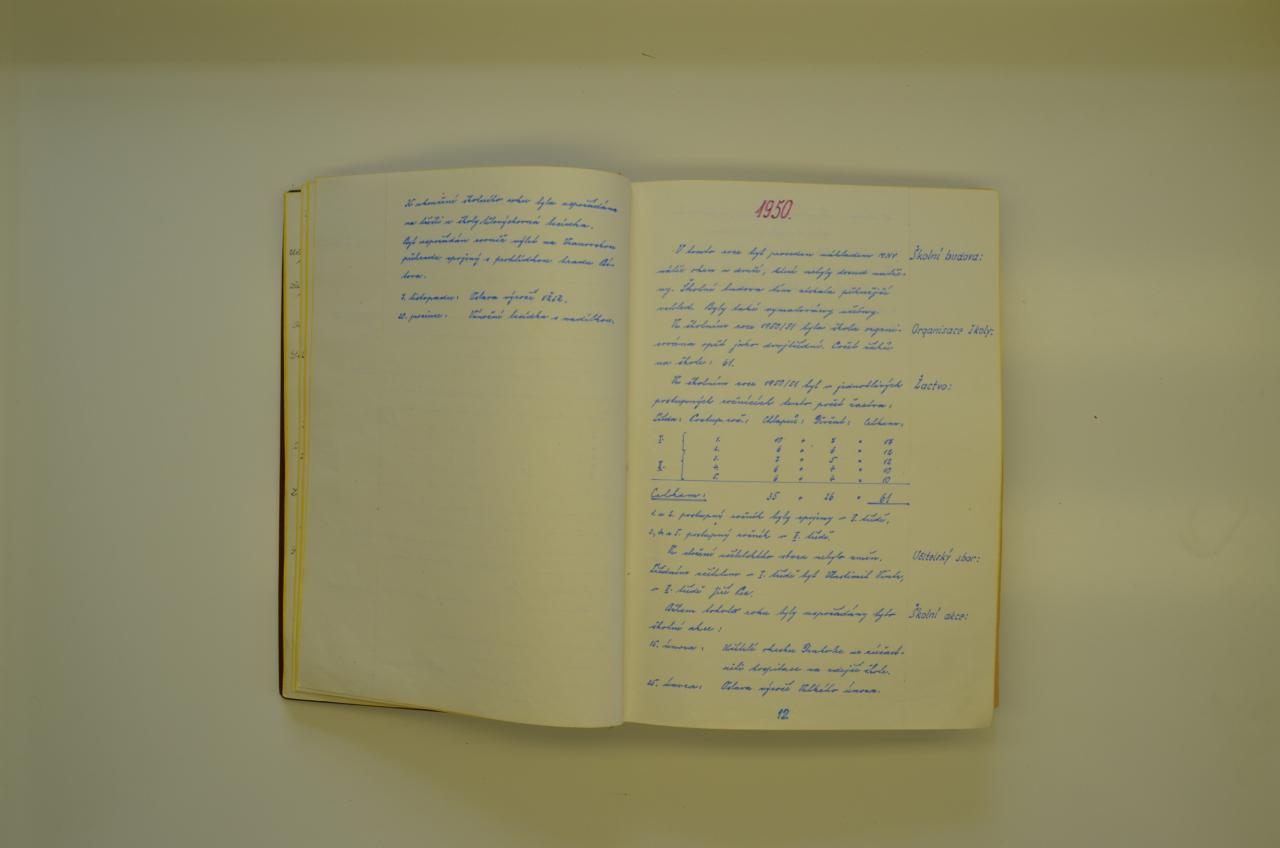 K ukončení školního roku byla uspořádána
na hřišti u školy tělovýchovná besídka.
Byl uspořádán rovněž výlet na Vranovskou
přehradu spojený s prohlídkou hradu Bí-
tova.
7. listopadu: Oslava výročí VŘSR.
20. prosince: Vánoční besídka s nadílkou.
1950.
V tomto roce byl proveden nákladem MNV
nátěr oken a dveří, které nebyly dosud natře-
ny. Školní budova tím získala pěknější
vzhled. Byly také vymalovány učebny.
Školní budova:
Ve školním roce 1950/51 byla škola organi-
sována opět jako dvojtřídní. Počet žáků
na škole: 61.
Organisace školy:
Ve školním roce 1950/51 byl v jednotlivých
postupných ročnících tento počet žactva:
Žactvo:
Třída: Postup. roč.: Chlapců: Děvčat: Celkem:
I. 1. 10 + 7 = 17
2. 6 + 6 = 12
3. 7 + 5 = 12
II. 4. 6 + 4 = 10
5. 6 + 4 = 10
Celkem: 35 + 26 = 61
1. a 2. postupný ročník byly spojeny v I. třídě,
3., 4. a 5. postupný ročník v II. třídě.
Ve složení učitelského sboru nebylo změn.
Třídním učitelem v I. třídě byl Vlastimil
v II. třídě Jiří
Učitelský sbor:
Během tohoto roku byly uspořádány tyto
školní akce:
Školní akce:
15. února: Učitelé okrsku se zúčast-
nili hospitace na zdejší škole.
25. února: Oslava výročí Velkého února.
12